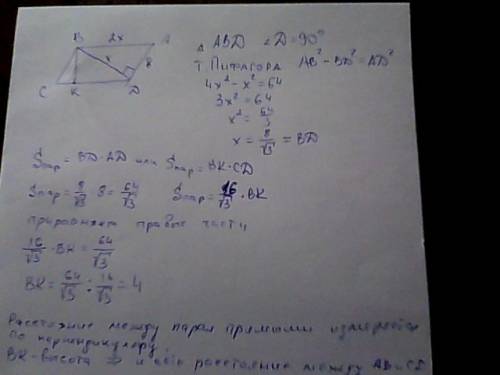 B 2x A
x 8
C K D
△ ABD ∠D=90°
т. Пифагора AB²-BD²=AD²
4x²-x²=64
3x²=64
x²=64/3
x=8/√3=BD
Sпар=BD·AD или Sпар=BK·CD
Sпар=8/√3·8=64/√3 Sпар=16/√3·BK
приравняем правые части
16/√3·BK=64/√3
BK=64/√3:16/√3=4
Расстояние между парал прямыми измеряется
по перпендикуляру.
BK-высота ⇒ и есть расстояние между AB и CD